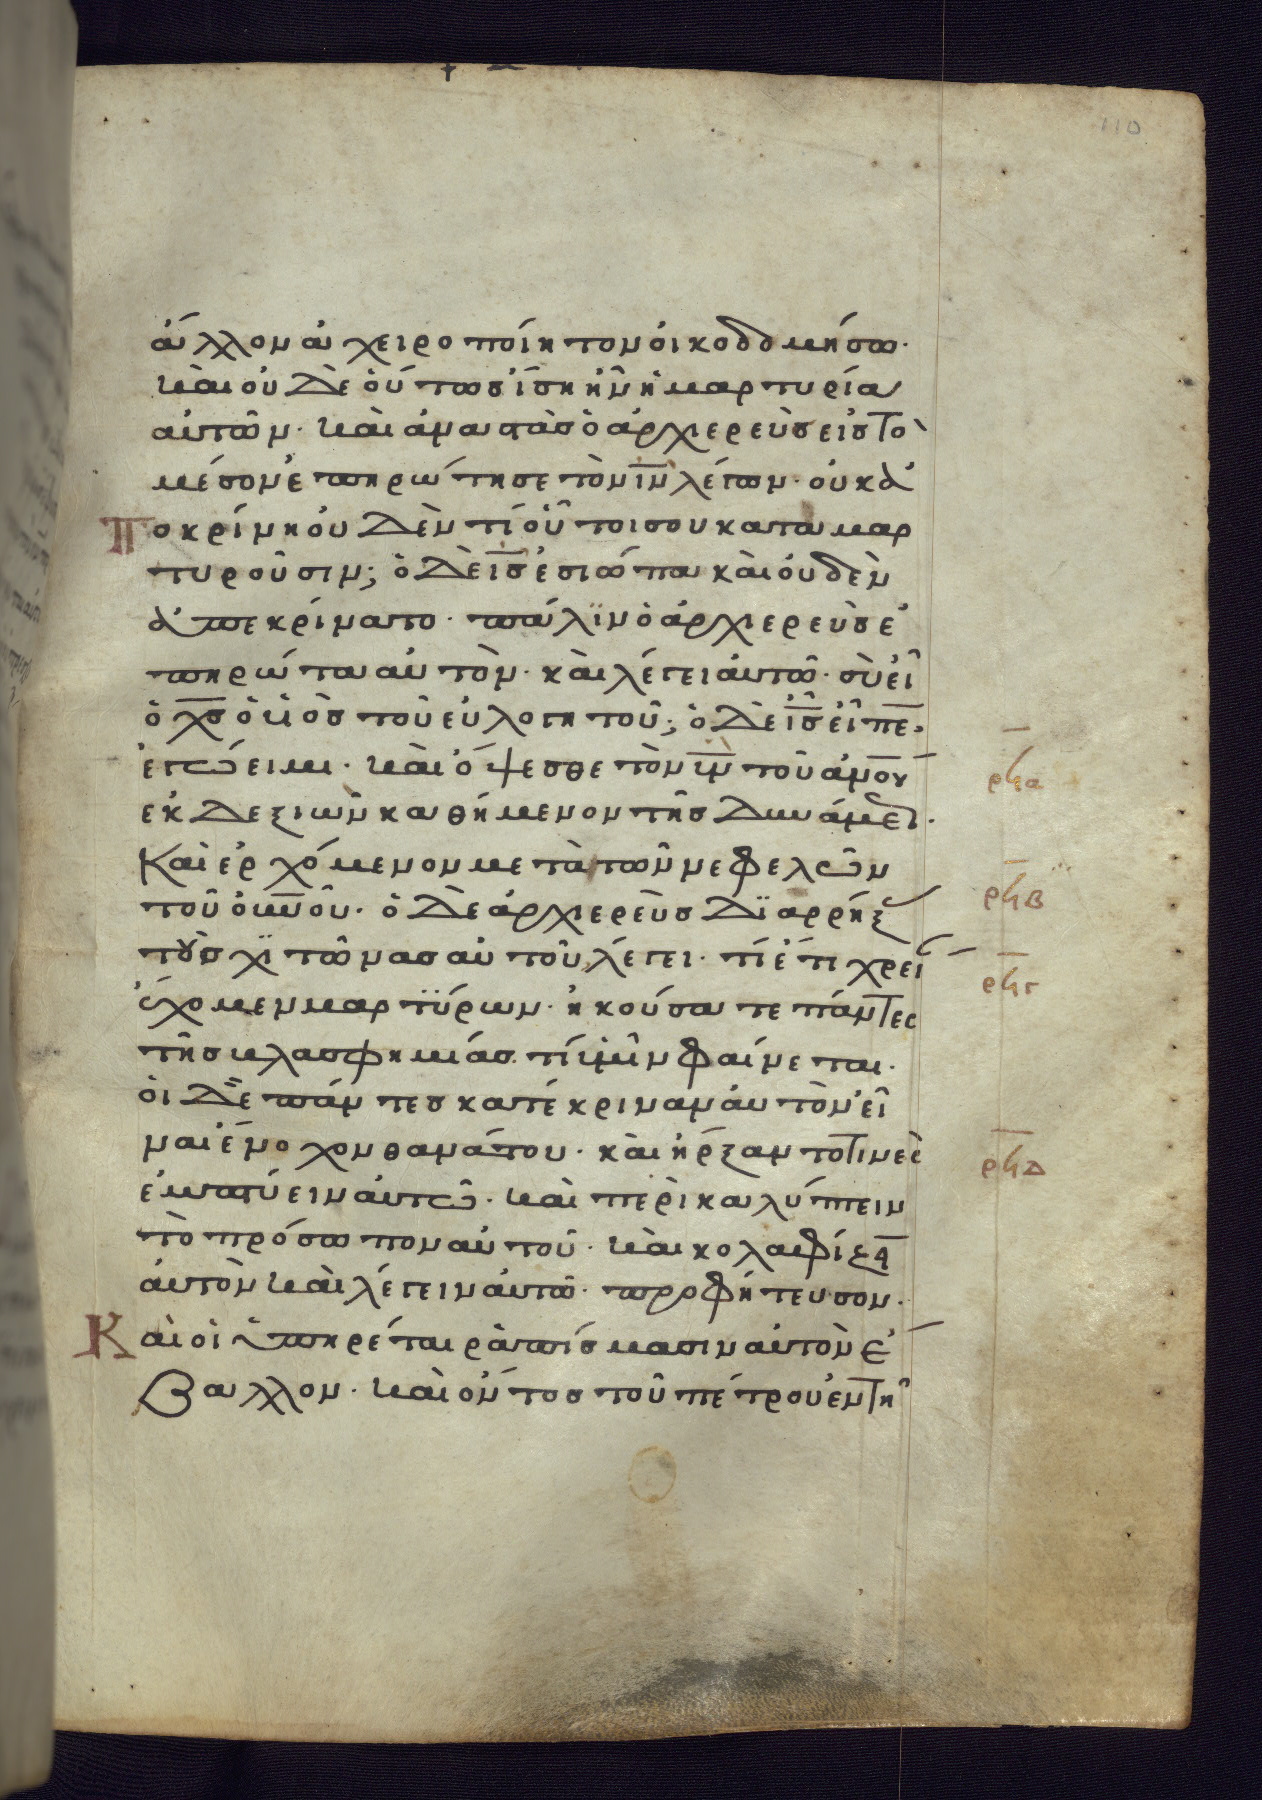 110
ἄλλον ἀχειροποίητον οἰκοδομήσω·
καὶ οὐδὲ οὕτως ἴση ἦν ἡ μαρτυρία
αὐτῶν· καὶ ἀναστὰς ὁ ἀρχιερεὺς εἰς τὸ
μέσον ἐπηρώτησε τὸν ιν λέγων· οὐκ ἀ
ποκρίνη οὐδὲν τί οὗτοί σου καταμαρ
τυροῦσιν; ὁ δὲ ις ἐσιώπα καὶ οὐδὲν
ἀπεκρίνατο· πάλϊν ὁ ἀρχιερεὺς ἐ
πηρώτα αὐτὸν· καὶ λέγει αὐτῶ· σὺ εἶ
ὁ χς ὁ υἱὸς τοῦ εὐλογητοῦ; ὁ δὲ ις εἶπε·
ἐγώ εἰμι· καὶ ὄψεσθε τὸν υν τοῦ ανου
ἐκ δεξιῶν καθήμενον τῆς δυνάμεως·
Καὶ ἐρχόμενον μετὰ τῶν νεφελῶν
τοῦ οὐνοῦ· ὁ δὲ ἀρχιερεὺς δϊαρρήξ
τοὺς χϊτῶνας αὐτοῦ λέγει· τί ἔτι χρεί
ἔχομεν μαρτΰρων· ἠκούσατε πάντες
τῆς βλασφημίας· τί ὑμῖν φαίνεται·
οἱ δὲ πάντες κατέκριναν αὐτὸν εἶ
ναι ἔνοχον θανάτου· καὶ ἤρξαντό τινες
ἐμπτύειν αὐτῶ· καὶ περικαλύπτειν
τὸ πρόσωπον αὐτοῦ· καὶ κολαφίζειν
αὐτὸν καὶ λέγειν αὐτῶ· προφήτευσον·
Καὶ οἱ ὑπηρέται ραπίσμασιν αὐτὸν ἔ
βαλλον· καὶ ὄντος τοῦ πέτρου ἐν τῆ
ρϟα
ρϟβ
ρϟγ
ρϟδ